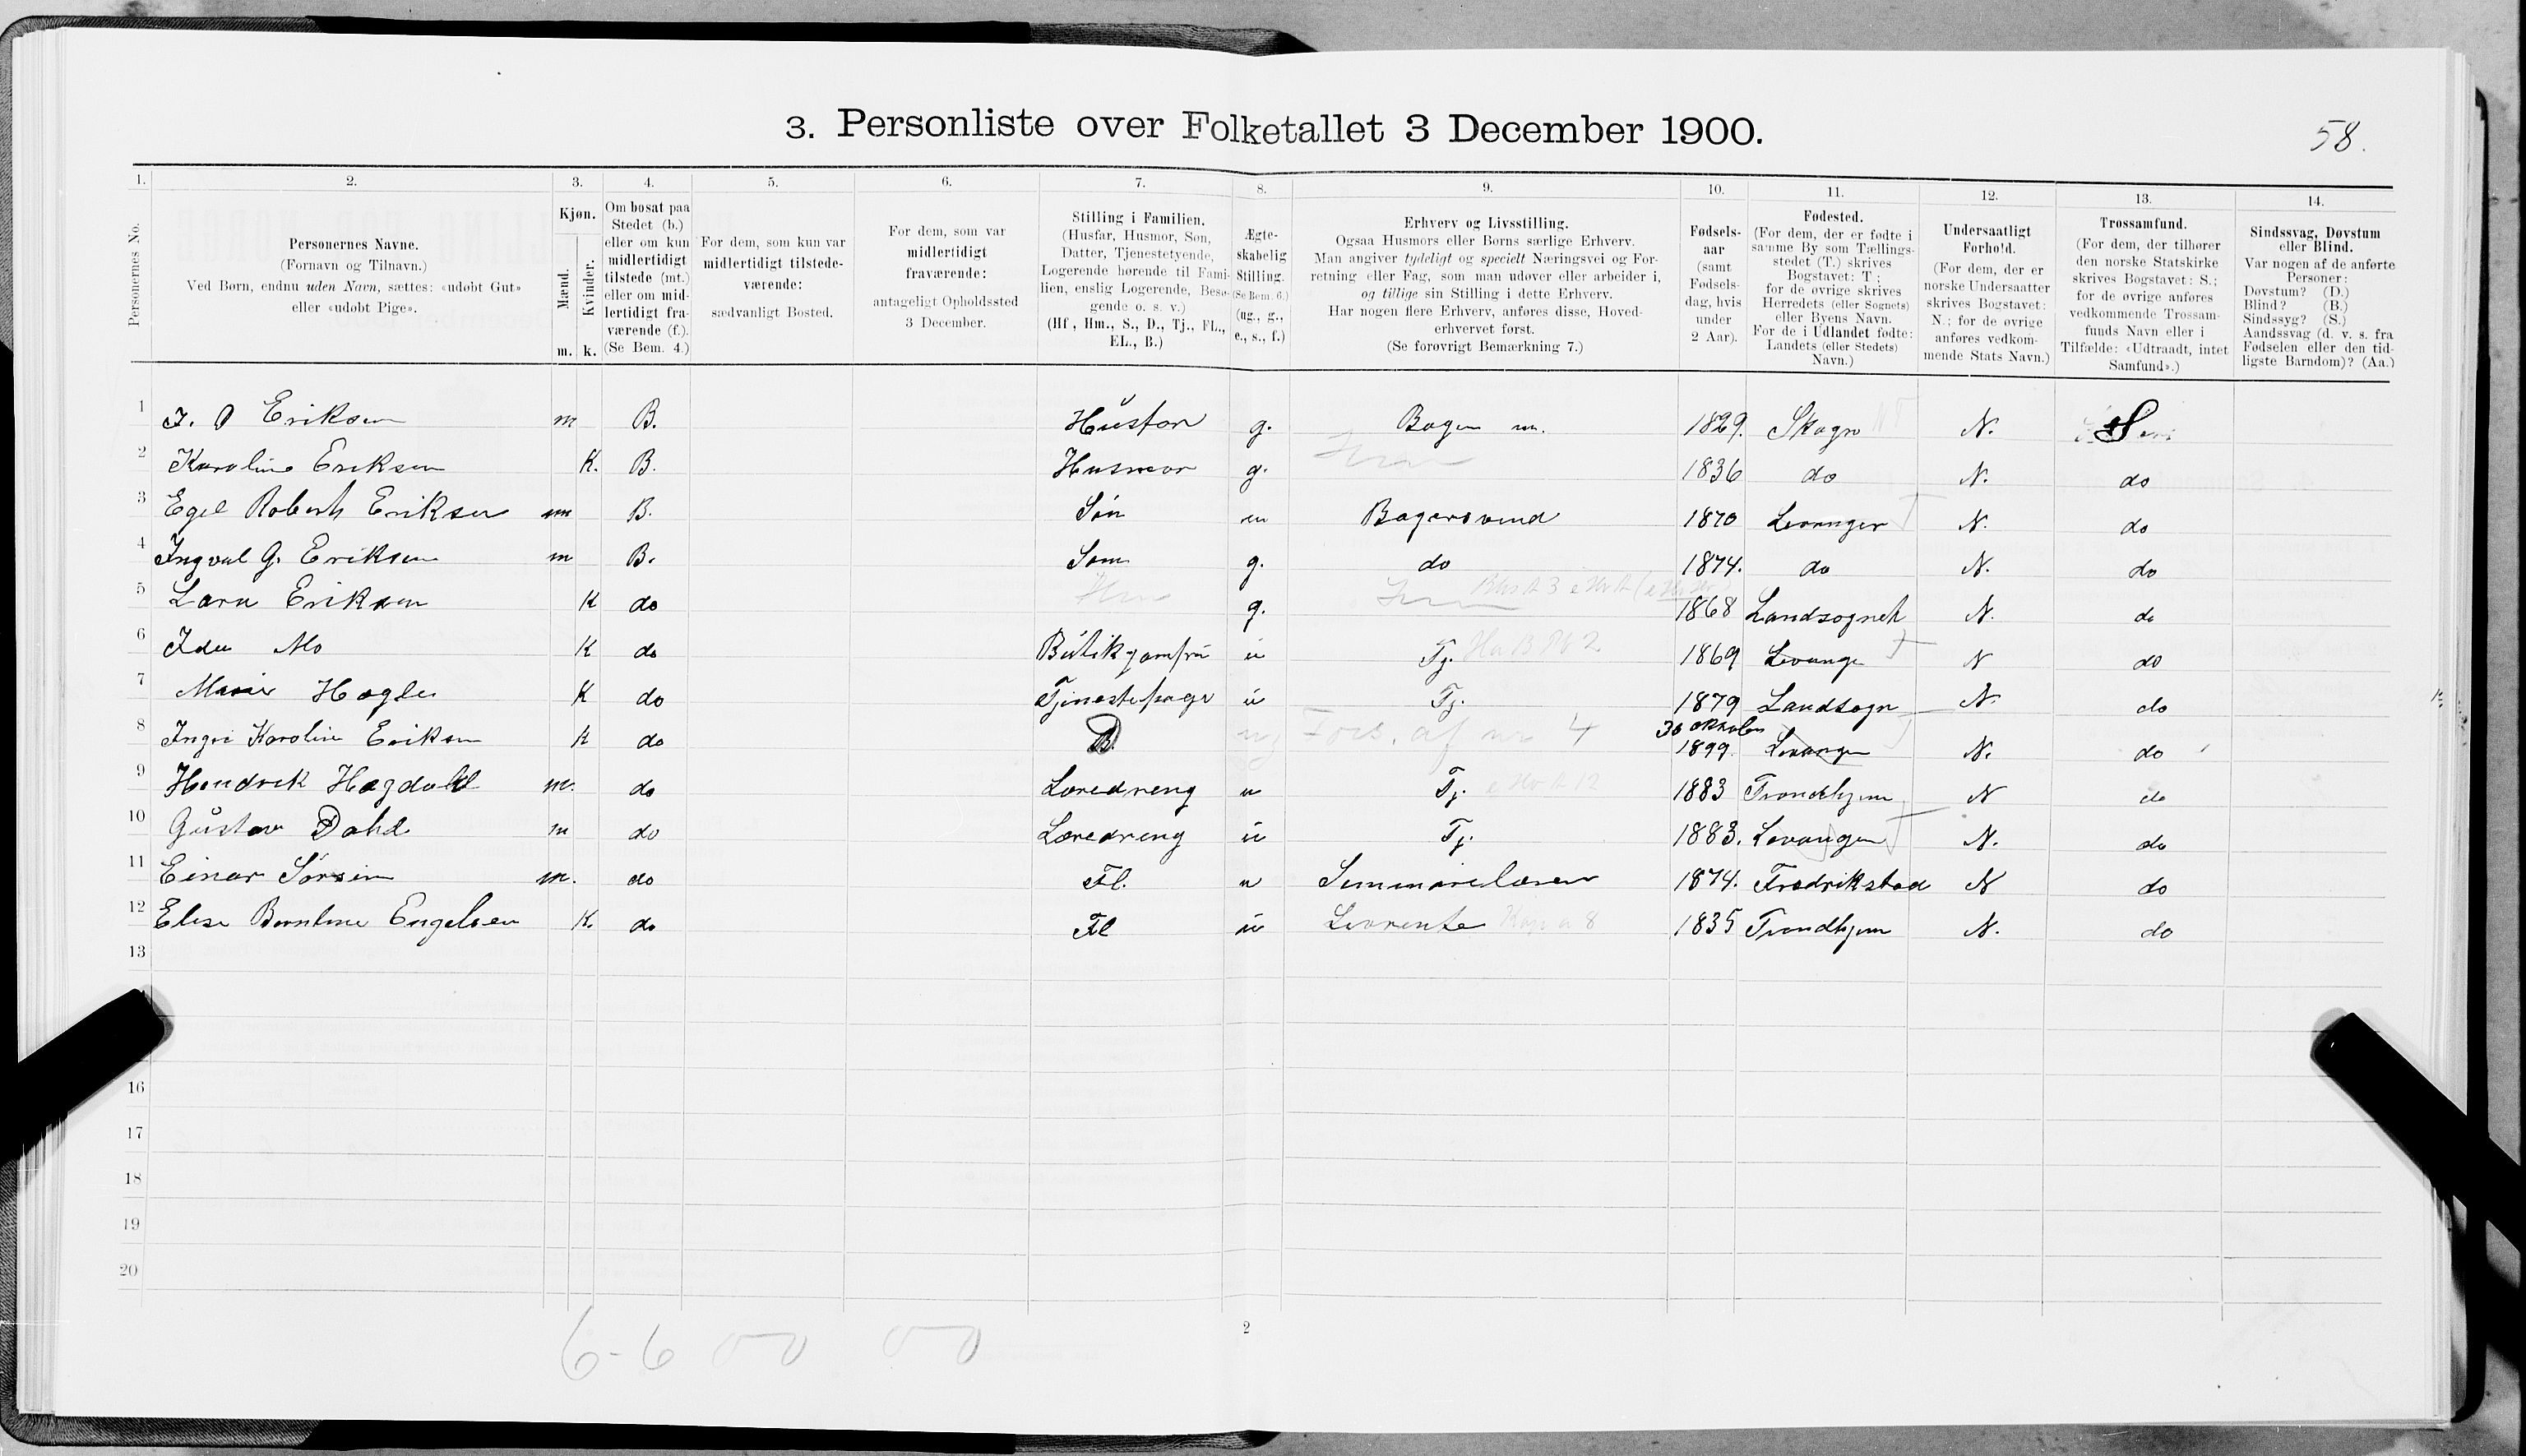 3. Personliste over Folketallet 3 December 1900.
58.
1. 2. 3. 4. 5. 6. 7. 8. 9. 10. 11. 12. 13. 14.
Personernes No.
Personernes Navne.
(Fornavn og Tilnavn.)
Ved Børn, endnu uden Navn, sættes: «udøbt Gut»
eller «udøbt Pige».
Kjøn.
Mænd.
Kvinder.
m. k.
Om bosat paa
Stedet (b.)
eller om kun
midlertidigt
tilstede (mt.)
eller om mid-
lertidigt fra-
værende (f.).
(Se Bem. 4.)
For dem, som kun var
midlertidigt tilstede-
værende:
sædvanligt Bosted.
For dem, som var
midlertidigt
fraværende:
antageligt Opholdssted
3 December.
Stilling i Familien.
(Husfar, Husmor, Søn,
Datter, Tjenestetyende,
Logerende hørende til Fami-
lien, enslig Logerende, Besø-
gende o. s. v.)
(Hf, Hm., S., D., Tj., FL.,
EL., B.)
Ægte-
skabelig
Stilling.
(Se Bem. 6.)
(ug., g.,
e., s., f.)
Erhverv og Livsstilling.
Ogsaa Husmors eller Børns særlige Erhverv.
Man angiver tydeligt og specielt Næringsvei og For-
retning eller Fag, som man udøver eller arbeider i,
og tillige sin Stilling i dette Erhverv.
Har nogen flere Erhverv, anføres disse, Hoved-
erhvervet først.
(Se forøvrigt Bemærkning 7.)
Fødsels-
aar
(samt
Fødsels-
dag, hvis
under
2 Aar).
Fødested.
(For dem, der er fødte i
samme By som Tællings-
stedet (T.) skrives
Bogstavet: T;
for de øvrige skrives
Herredets (eller Sognets)
eller Byens Navn.
For de i Udlandet fødte:
Landets (eller Stedets)
Navn.)
Undersaatligt
Forhold.
(For dem, der er
norske Undersaatter
skrives Bogstavet:
N.; for de øvrige
anføres vedkom-
mende Stats Navn.)
Trossamfund.
(For dem, der tilhører
den norske Statskirke
skrives Bogstavet: S.;
for de øvrige anføres
vedkommende Trossam-
funds Navn eller i
Tilfælde: «Udtraadt, intet
Samfund».)
Sindssvag, Døvstum
eller Blind.
Var nogen af de anførte
Personer:
Døvstum? (D.)
Blind? (B.)
Sindssyg? (S.)
Aandssvag (d. v. s. fra
Fødselen eller den tid-
ligste Barndom)? (Aa.)
1 J. O Eriksen m B. Husfar g. Bager m. 1829. Skogn N. S
2 Karoline Eriksen K. B. Husmor g. 1836 do N. do
3 Egel Robert Eriksen m B. Søn u Bagersvend 1870 Levanger T N. do
4 Ingval G. Eriksen m B. Søn g. do 1874. do N. do
5 Lara Eriksen K do g. 1868 Landsognet N. do
6 Ida Mo K do Butikjomfru u Tj. 1869 Levanger T N do
7 Marie Hogle K do Tjenestepige u Tj. 1879 Landsogn N. do
8 Ingri Karoline Eriksen K do B. ug Fors. af nr 4 30 oktober 1899 Levanger N. do
9 Hendrek Hagdahl m. do Læredreng u Tj. 1883 Trondhjem N do
10 Gustav Dahl m do Læredreng u Tj. 1883. Levanger T N. do
11 Einar Sørsen m. do Fl. u 1874. Fredrikstad N do
12 Elise Berntine Engelsen K. do Fl u Livrente 1835 Trondhjem N. do
13
16
17
18
19
20
6-6 00 00
2